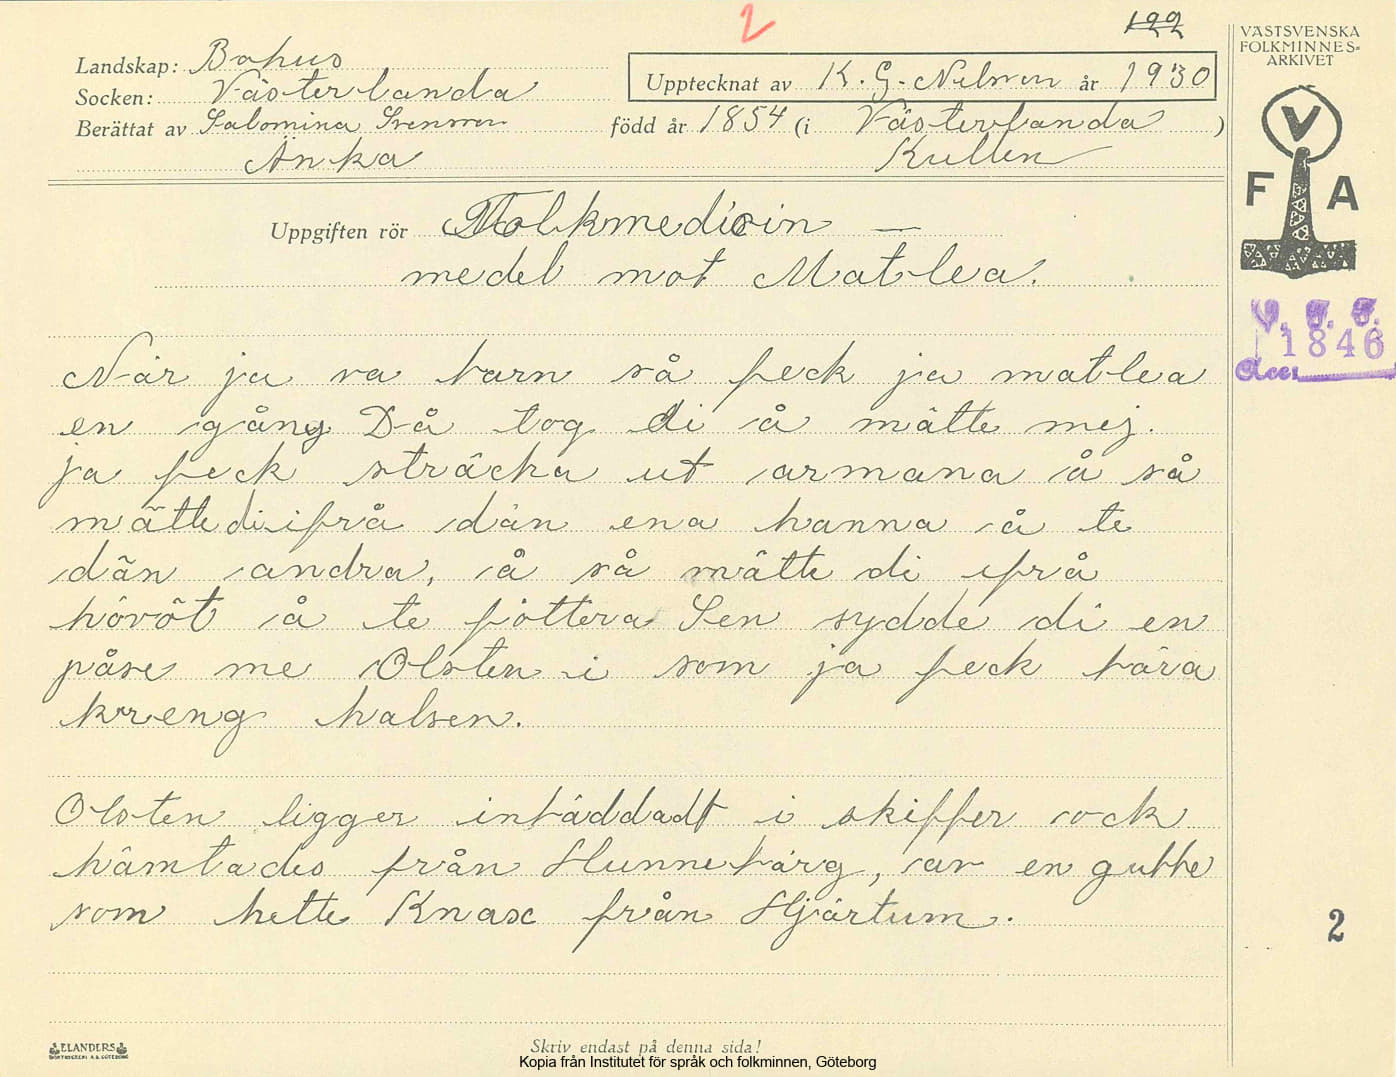 2
122
VÄSTSVENSKA
FOLKMINNES-
ARKIVET
Landskap: Bohus
Socken: Västerlanda
Upptecknat av K. G. Nilsson år 1930
Berättat av Salomina Svensson född år 1854 (i Västerlanda )
Änka Kullen
V
F A
Uppgiften rör Folkmedicin —
medel mot Matlea.
V. F. A.
1846
Acc.
När ja va barn så feck ja matlea
en gång Då tog di å mätte mej.
ja feck sträcka ut armana å så
mätte di ifrå dän ena hanna å te
dän andra, å så mätte di ifrå
hövöt å te föttera Sen sydde di en
påse me Olsten i som ja feck bära
kreng halsen.
Olsten ligger inbäddadt i skiffer ock
hämtades från Hunnebärg, av en gubbe
som hette Knax från Hjärtum.
2
ELANDERS
BOKTRYCKERI A.B. GÖTEBORG
Skriv endast på denna sida!
Kopia från Institutet för språk och folkminnen, Göteborg